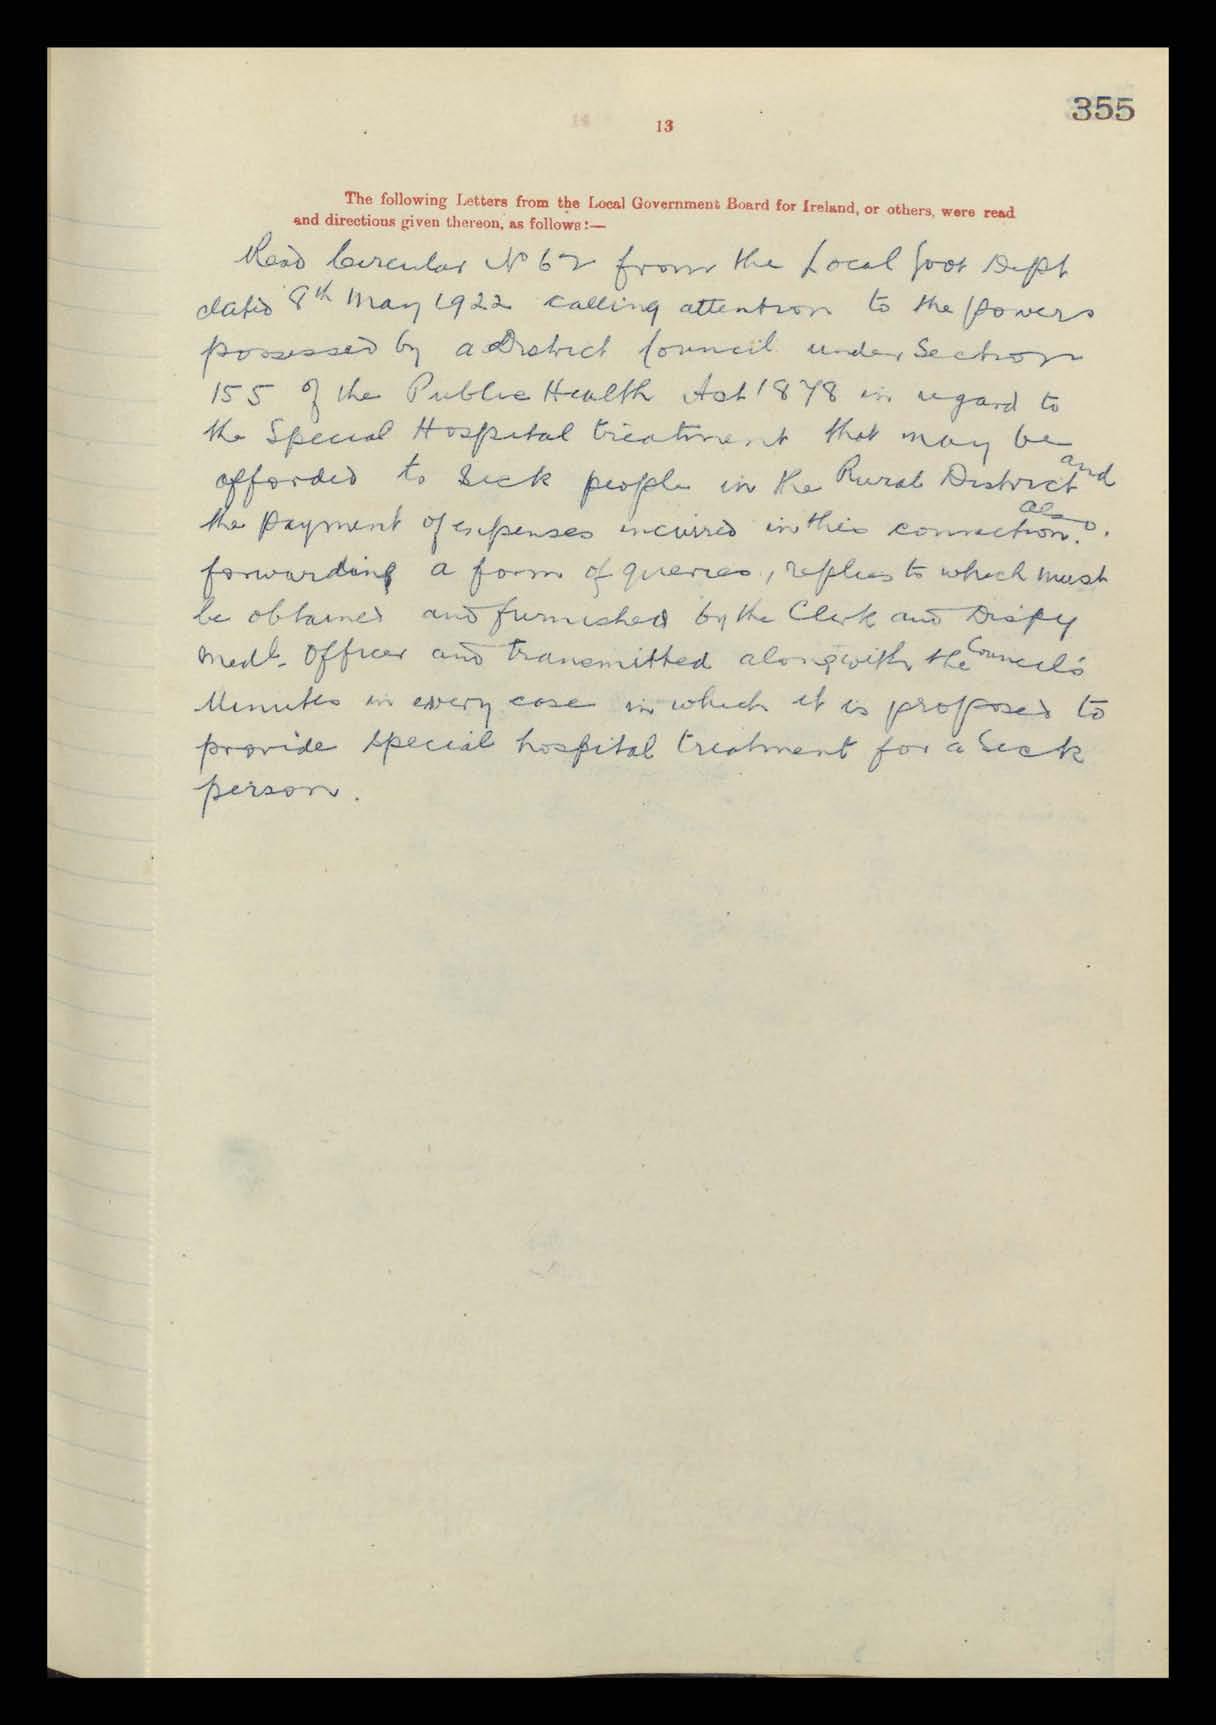 355
13
The following Letters from the Local Government Board for Ireland, or others, were read
and directions given thereon, as follows:—
Read Circular No 62 from the Local Govt Dept
dated 8th May 1922 calling attention to the powers
possessed by a District Council under Section
155 of the Public Health Act 1878 in regard to
the Special Hospital treatment that may be
afforded to Sick people in the Rural District and
the payment of expenses incurred in this connection. also
forwarding a form of queries, replies to which must
be obtained and furnished by the Clerk and Dispy
Medl. Officer and transmitted alongwith the Council's
Minutes in every case in which it is proposed to
provide special hospital treatment for a Sick
person.